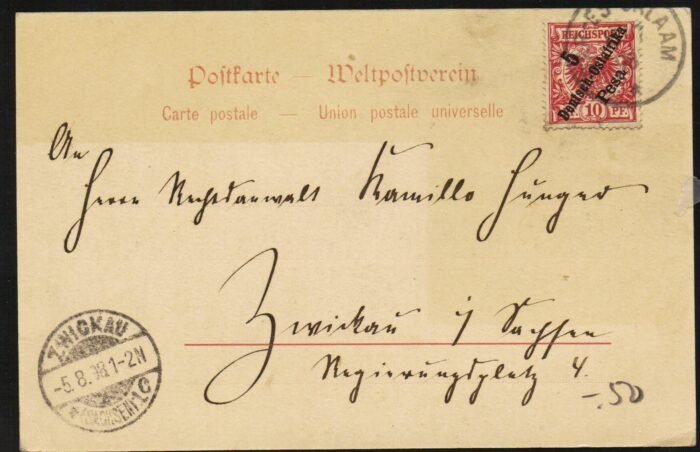 Postkarte — Weltpostverein
Carte postale — Union postale universelle
ES SALAAM
REICHSPOST
5
Deutsch-Ostafrika
Pesa
10 PF
An
Herrn Rechtsanwalt Kamillo Hunger
Zwickau i/ Sachsen
Regierungsplatz 4.
ZWICKAU
-5.8.98.1-2N
* (SACHSEN) 1c
-.50